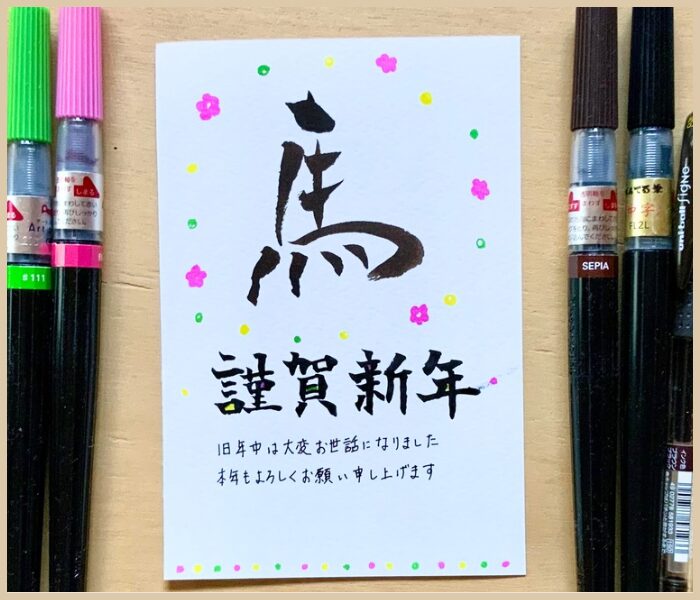 馬
謹賀新年
旧年中は大変お世話になりました
本年もよろしくお願い申し上げます
#111
しまる
SEPIA
FL2L
uni-ball SIGNO